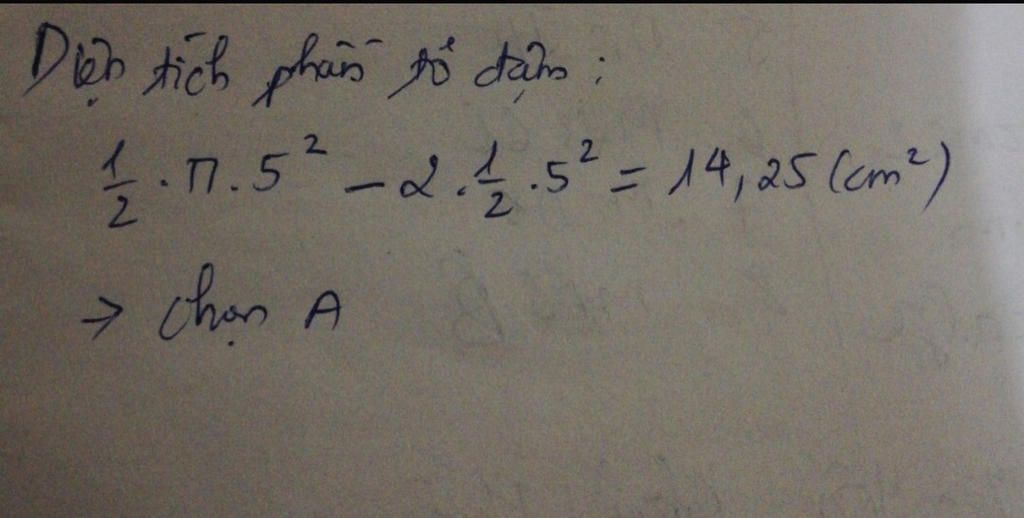 Diện tích phần tô đậm:
1/2 . π . 5² - 2 . 1/2 . 5² = 14,25 (cm²)
→ chọn A